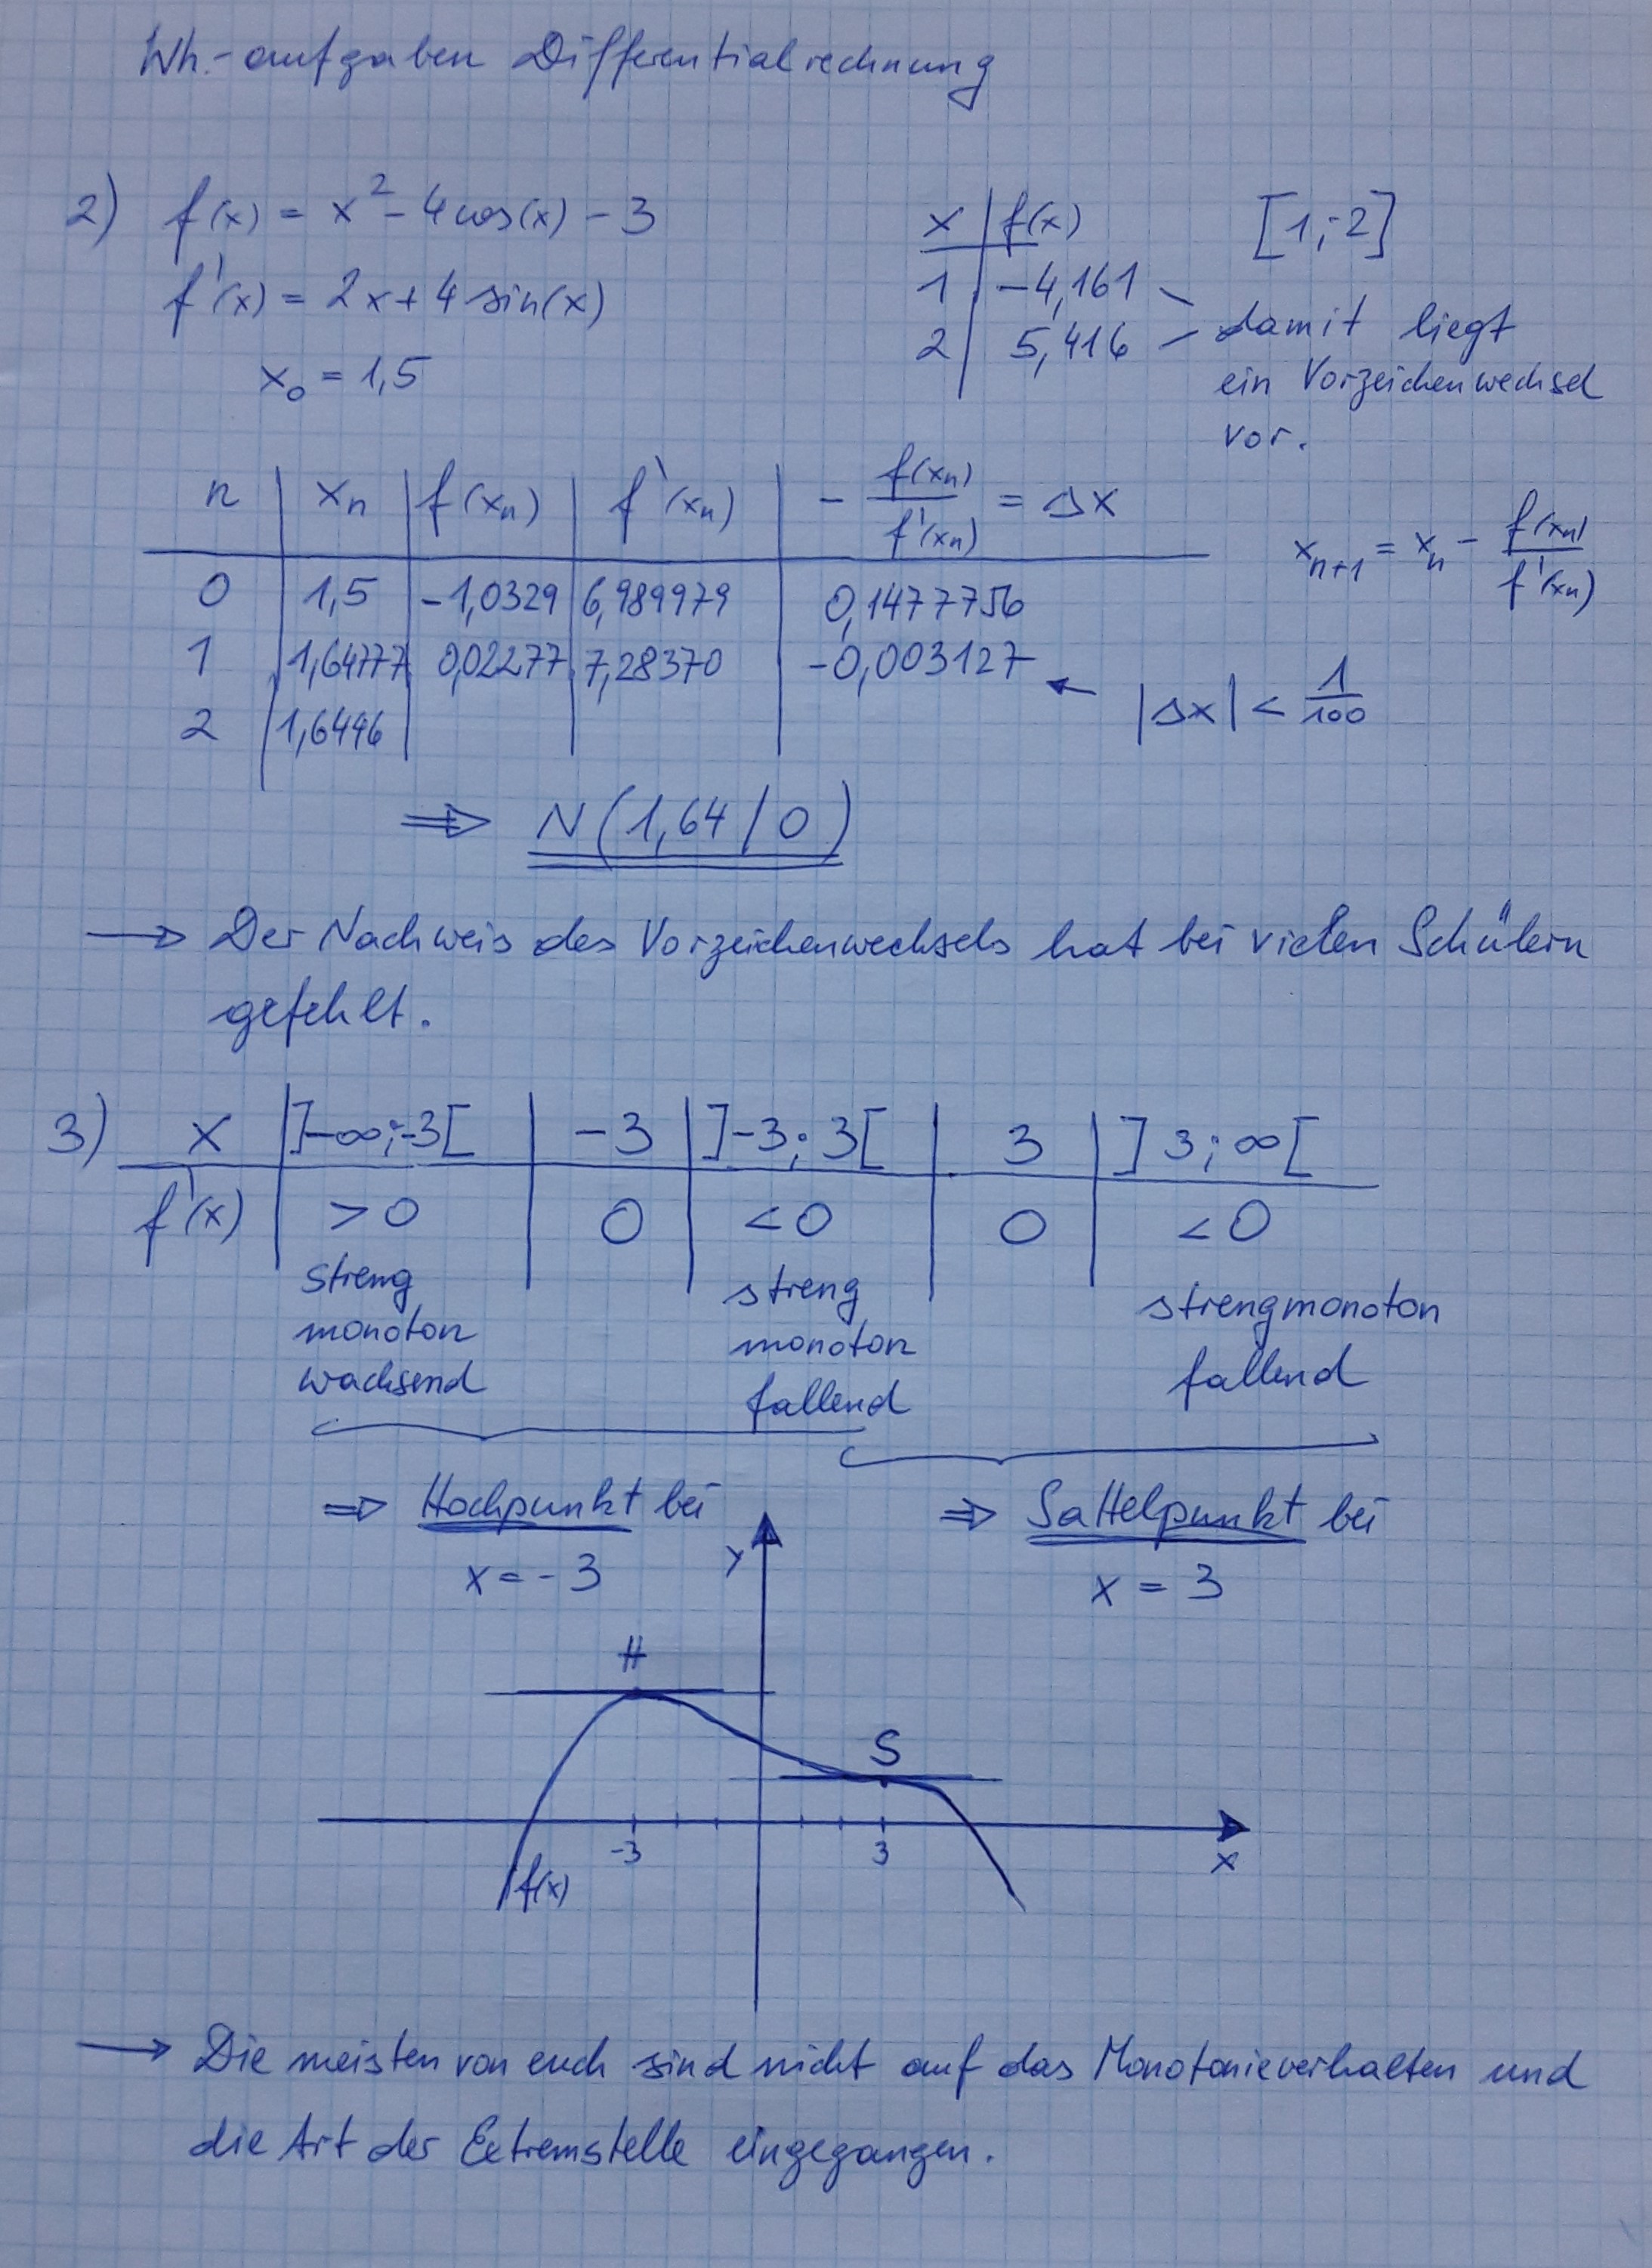 Wh.-aufgaben Differentialrechnung
2) f(x) = x² - 4cos(x) - 3
f'(x) = 2x + 4 sin(x)
x₀ = 1,5
x | f(x)
1 | -4,161
2 | 5,416
[1;2]
damit liegt
ein Vorzeichenwechsel
vor.
n | xₙ | f(xₙ) | f'(xₙ) | - f(xₙ)/f'(xₙ) = Δx
0 | 1,5 | -1,0329 | 6,989979 | 0,1477756
1 | 1,64777 | 0,02277 | 7,28370 | -0,003127
2 | 1,6446
xₙ₊₁ = xₙ - f(xₙ)/f'(xₙ)
|Δx| < 1/100
⇒ N(1,64/0)
→ Der Nachweis des Vorzeichenwechsels hat bei vielen Schülern
gefehlt.
3) x | ]-∞;-3[ | -3 | ]-3;3[ | 3 | ]3;∞[
f'(x) | >0 | 0 | <0 | 0 | <0
streng
monoton
wachsend
streng
monoton
fallend
strengmonoton
fallend
⇒ Hochpunkt bei
x = -3
⇒ Sattelpunkt bei
x = 3
y
H
S
-3
3
x
f(x)
→ Die meisten von euch sind nicht auf das Monotonieverhalten und
die Art der Extremstelle eingegangen.